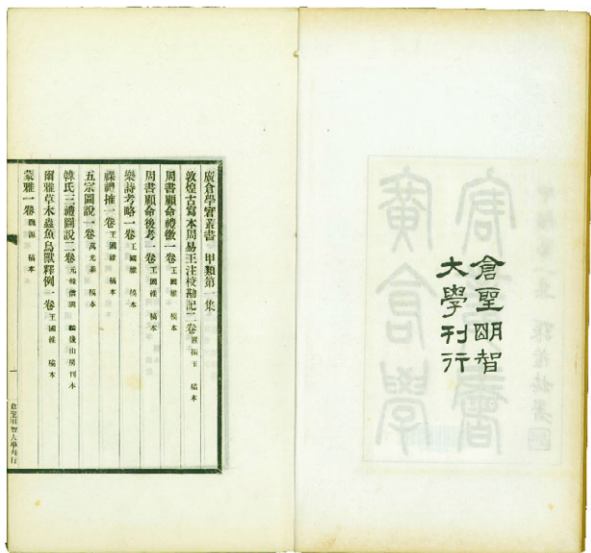 倉聖明智
大學刊行
廣倉學宭叢書 甲類第一集
敦煌古寫本周易王注校勘記二卷 羅振玉 稿本
周書顧命禮徵一卷 王國維 稿本
周書顧命後考一卷 王國維 稿本
樂詩考略一卷 王國維 稿本
祼禮搉一卷 王國維 稿本
五宗圖說一卷 萬光泰 稿本
韓氏三禮圖說二卷 元韓信同 麟後山房刊本
爾雅草木蟲魚鳥獸釋例一卷 王國維 稿本
蒙雅一卷 魏源 稿本
一
倉聖明智大學刊行